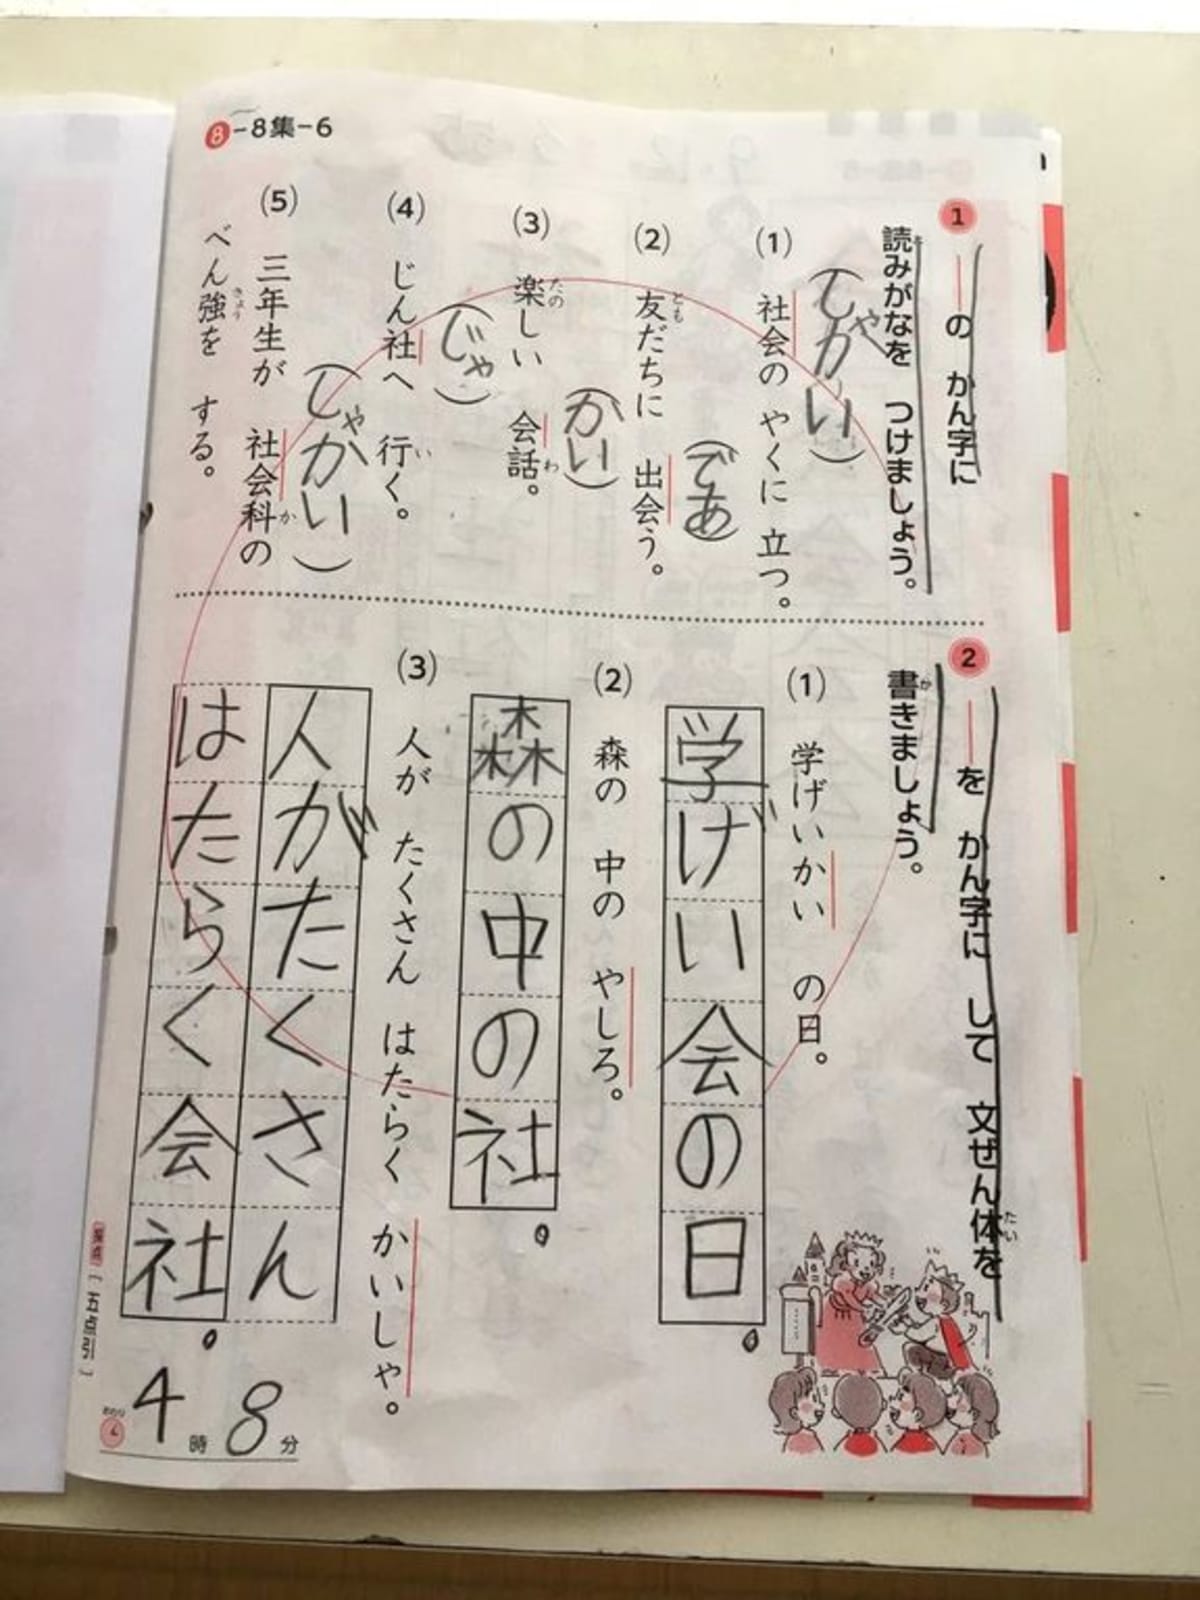 8-8集-6
1
―の かん字に
読みがなを つけましょう。
(1) 社会の やくに 立つ。
(しゃかい)
(2) 友だちに 出会う。
とも
(であ)
(3) 楽しい 会話。
たの
わ
(かい)
(4) じん社へ 行く。
い
(じゃ)
(5) 三年生が 社会科の
か
べん強を する。
きょう
(しゃかい)
2
―を かん字に して 文ぜん体を
たい
書きましょう。
か
(1) 学げいかい の日。
学げい会の日。
(2) 森の 中の やしろ。
森の中の社。
(3) 人が たくさん はたらく かいしゃ。
人がたくさん
はたらく会社。
採点
五点引
おわり
4時8分